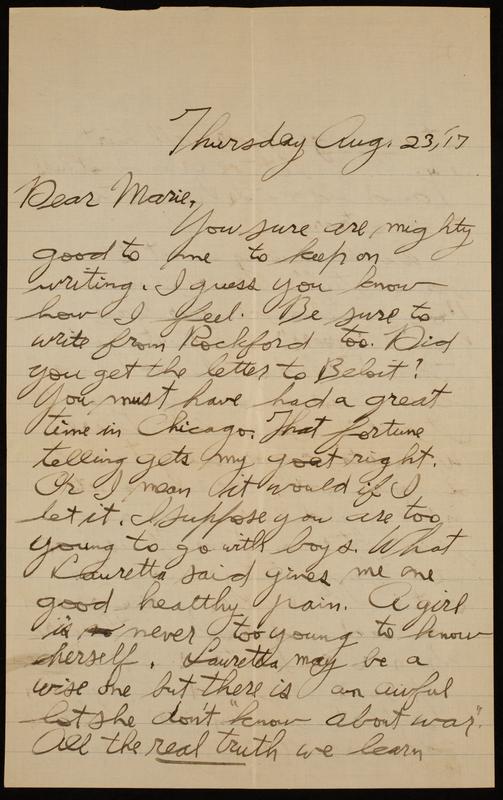 Thursday Aug. 23, '17
Dear Marie,
You sure are mighty
good to me to keep on
writing. I guess you know
how I feel. Be sure to
write from Rockford too. Did
you get the letter to Beloit?
You must have had a great
time in Chicago. That fortune
telling gets my goat right.
Or I mean it would if I
let it. I suppose you are too
young to go with boys. What
Lauretta said gives me one
good healthy pain. A girl
is never too young to know
herself. Lauretta may be a
wise one but there is an awful
lot she don't "know about war".
All the real truth we learn